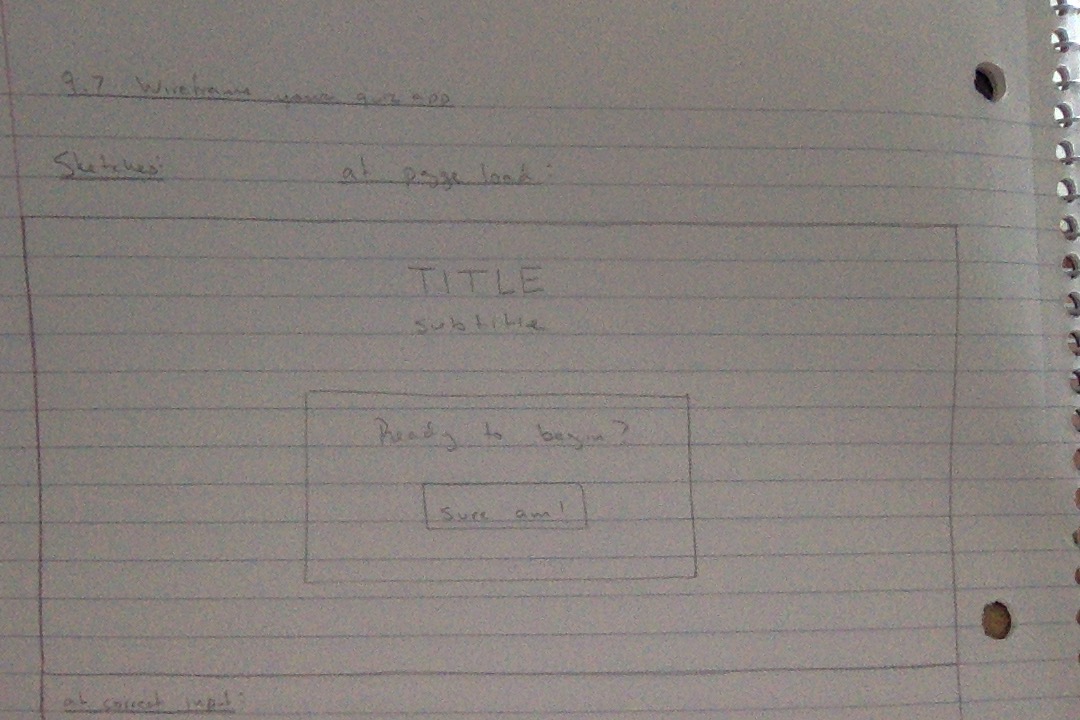 9.7 Wireframe your quiz app
Sketches: at page load:
TITLE
subtitle
Ready to begin?
Sure am!
at correct input: